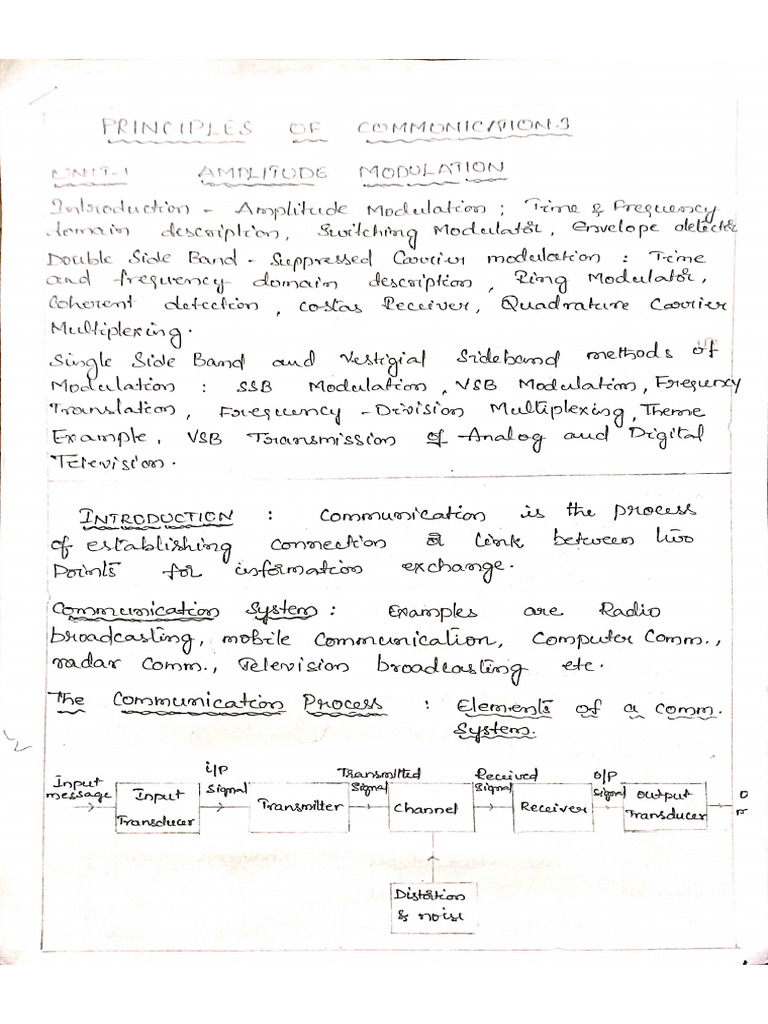 PRINCIPLES OF COMMUNICATIONS
UNIT-1 AMPLITUDE MODULATION
Introduction - Amplitude Modulation ; Time & Frequency
domain description, Switching Modulator, Envelope detector
Double Side Band - Suppressed Carrier modulation : Time
and frequency domain description, Ring Modulator,
Coherent detection, costas Receiver, Quadrature Carrier
Multiplexing.
Single Side Band and Vestigial Sideband methods of
Modulation : SSB Modulation, VSB Modulation, Frequency
Translation, Frequency - Division Multiplexing, Theme
Example, VSB Transmission of Analog and Digital
Television.
INTRODUCTION : Communication is the process
of establishing connection or link between two
points for information exchange.
Communication System : Examples are Radio
broadcasting, mobile communication, Computer Comm.,
radar Comm., Television broadcasting etc.
The Communication Process : Elements of a comm.
System.
Input message
Input Transducer
i/p signal
Transmitter
Transmitted signal
Channel
Received signal
Receiver
o/p signal
Output Transducer
Distortion
& noise